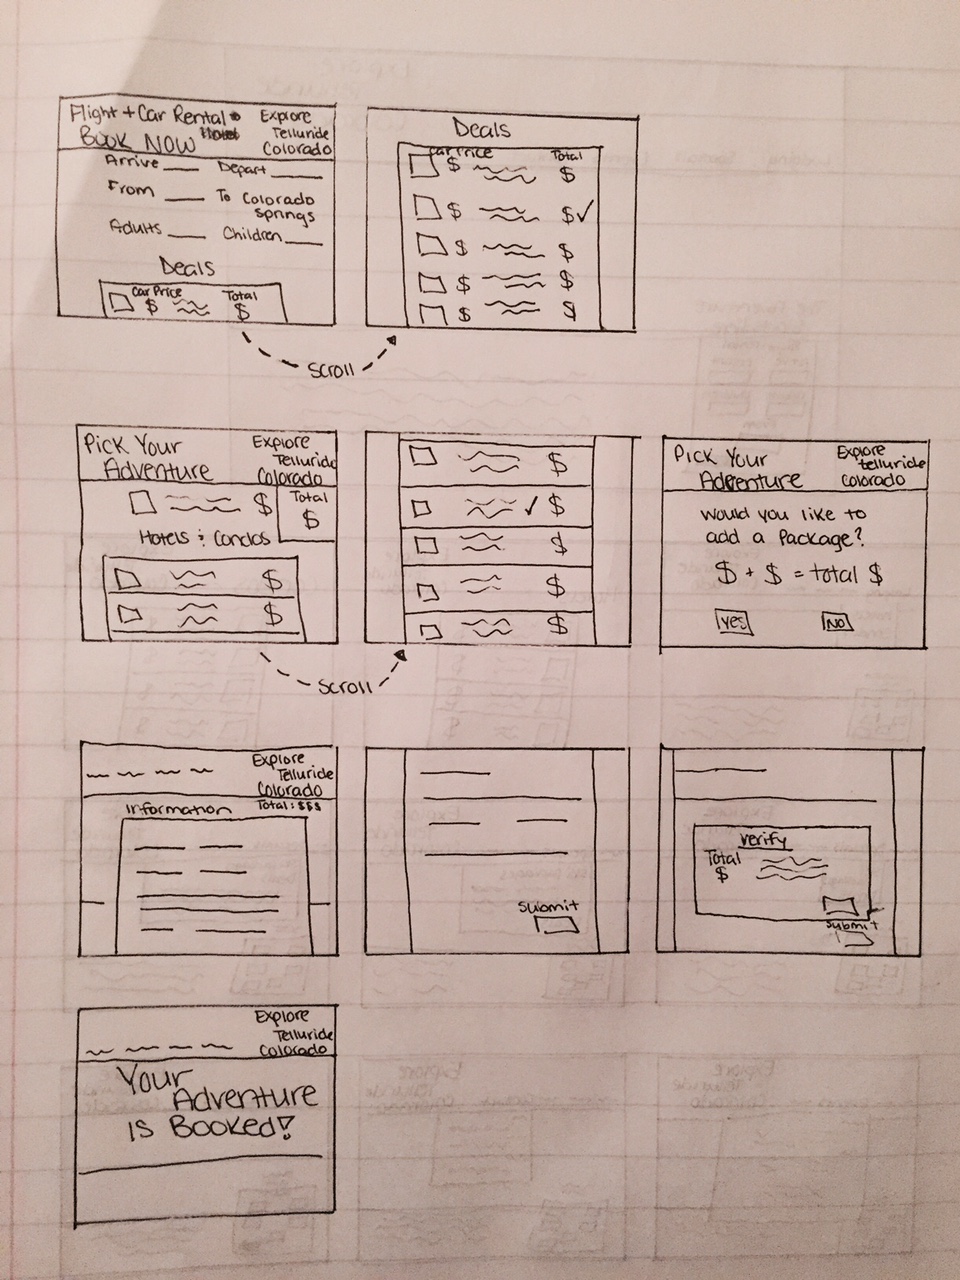 Flight + Car Rental +
Hotel
BOOK NOW
Explore
Telluride
Colorado
Arrive ___ Depart ___
From ___ To Colorado
Springs
Adults ___ Children ___
Deals
Car Price Total
$ $
Scroll
Deals
Car Price Total
$ $
$ $✓
$ $
$ $
$ $
Pick Your
Adventure
Explore
Telluride
Colorado
$ Total
$
Hotels & Condos
$
$
Scroll
$
✓ $
$
$
$
Pick Your
Adventure
Explore
Telluride
Colorado
Would you like to
add a Package?
$ + $ = total $
Yes No
Explore
Telluride
Colorado
Information Total: $$$
Submit
Verify
Total
$
Submit
Explore
Telluride
Colorado
Your
Adventure
is Booked!